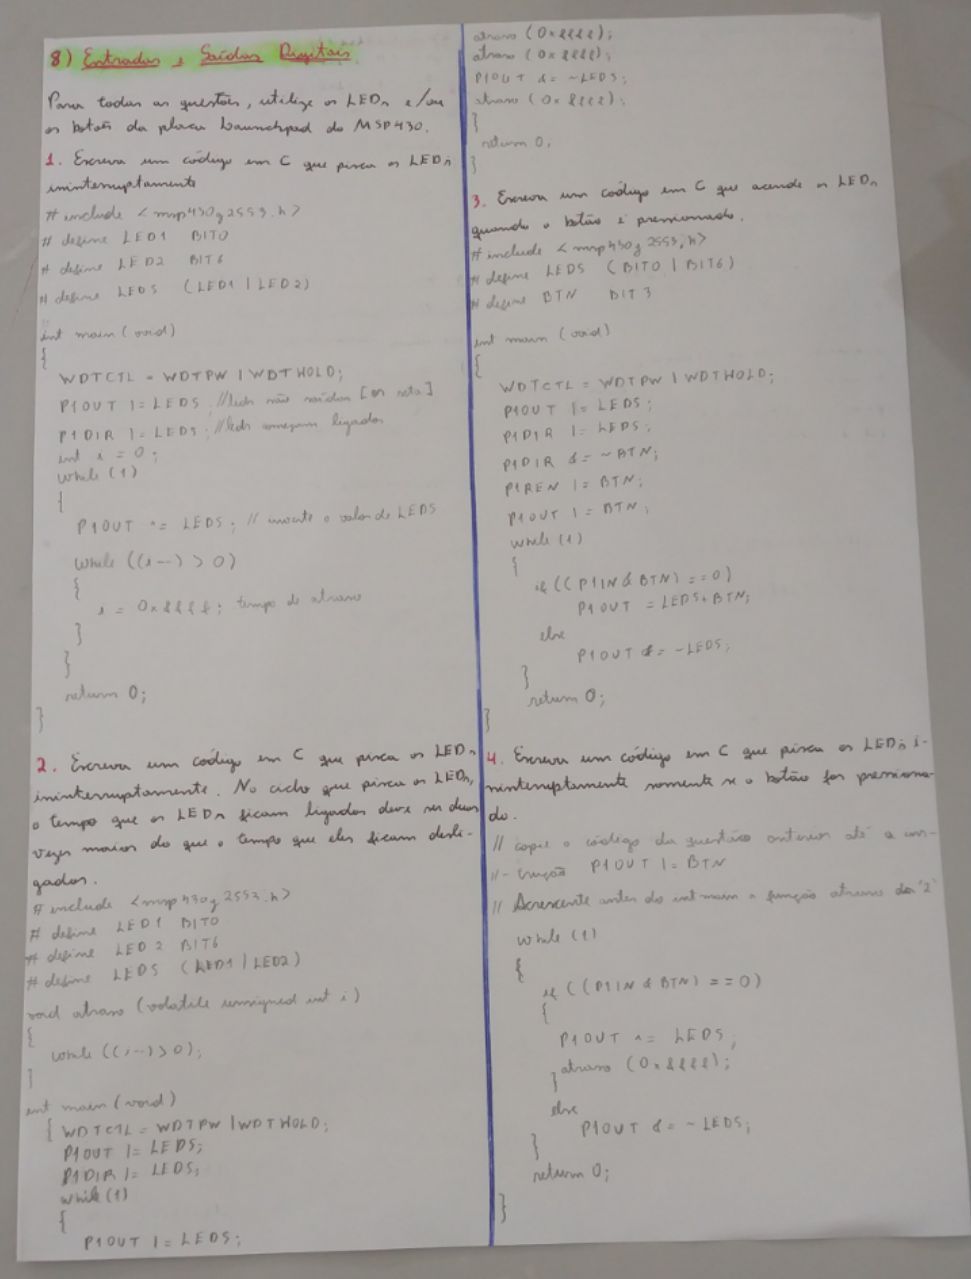 8) Entradas e Saídas Digitais
Para todas as questões, utilize os LEDs e/ou
os botões da placa Launchpad do MSP430.
1. Escreva um código em C que pisca os LEDs
ininterruptamente
# include <msp430g2553.h>
# define LED1 BIT0
# define LED2 BIT6
# define LEDS (LED1 | LED2)
int main (void)
{
WDTCTL = WDTPW | WDTHOLD;
P1OUT |= LEDS; //leds são saídas [en seta]
P1DIR |= LEDS; //leds começam ligados
int i = 0;
while (1)
{
P1OUT ^= LEDS; // inverte o valor de LEDS
while ((i--) > 0)
{
i = 0xffff; tempo de atraso
}
}
return 0;
}
2. Escreva um código em C que pisca os LEDs
ininterruptamente. No ciclo que pisca os LEDs,
o tempo que os LEDs ficam ligados deve ser duas
vezes maior do que o tempo que eles ficam desli-
gados.
# include <msp430g2553.h>
# define LED1 BIT0
# define LED2 BIT6
# define LEDS (LED1 | LED2)
void atraso (volatile unsigned int i)
{
while ((i--)>0);
}
int main (void)
{ WDTCTL = WDTPW | WDTHOLD;
P1OUT |= LEDS;
P1DIR |= LEDS;
while (1)
{
P1OUT |= LEDS;
atraso (0xffff);
atraso (0xffff);
P1OUT &= ~LEDS;
atraso (0xffff);
}
return 0;
}
3. Escreva um código em C que acende os LEDs
quando o botão é pressionado.
# include <msp430g2553.h>
# define LEDS (BIT0 | BIT6)
# define BTN BIT3
int main (void)
{
WDTCTL = WDTPW | WDTHOLD;
P1OUT |= LEDS;
P1DIR |= LEDS;
P1DIR &= ~BTN;
P1REN |= BTN;
P1OUT |= BTN;
while (1)
{
if ((P1IN & BTN) == 0)
P1OUT = LEDS+BTN;
else
P1OUT &= ~LEDS;
}
return 0;
}
4. Escreva um código em C que pisca os LEDs i-
ninterruptamente somente se o botão for pressiona-
do.
// copie o código da questão anterior até a ins-
//- trução P1OUT |= BTN
// Acrescente antes do int main a função atraso da "2"
while (1)
{
if ((P1IN & BTN) == 0)
{
P1OUT ^= LEDS;
atraso (0xffff);
}
else
P1OUT &= ~LEDS;
}
return 0;
}